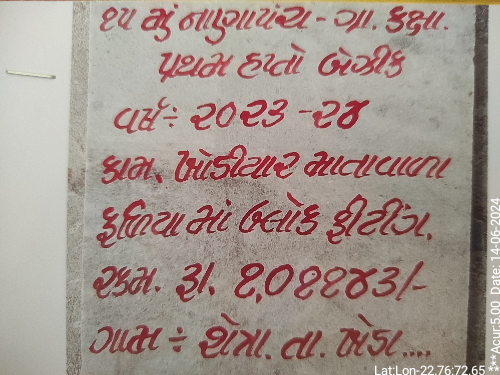 ૧૫ મું નાણાપંચ - ગ્રા. કક્ષા.
પ્રથમ હપ્તો બેઝીક
વર્ષ ÷ ૨૦૨૩ - ૨૪
કામ. ખોડીયાર માતાવાળા
ફળિયા માં બ્લોક ફીટીંગ.
રકમ. રૂા. ૧,૦૧૧૪૩/-
ગામ ÷ શેત્રા. તા. ખેડા....
Lat:Lon-22.76:72.65
*** Acur:5.00 Date: 14-06-2024